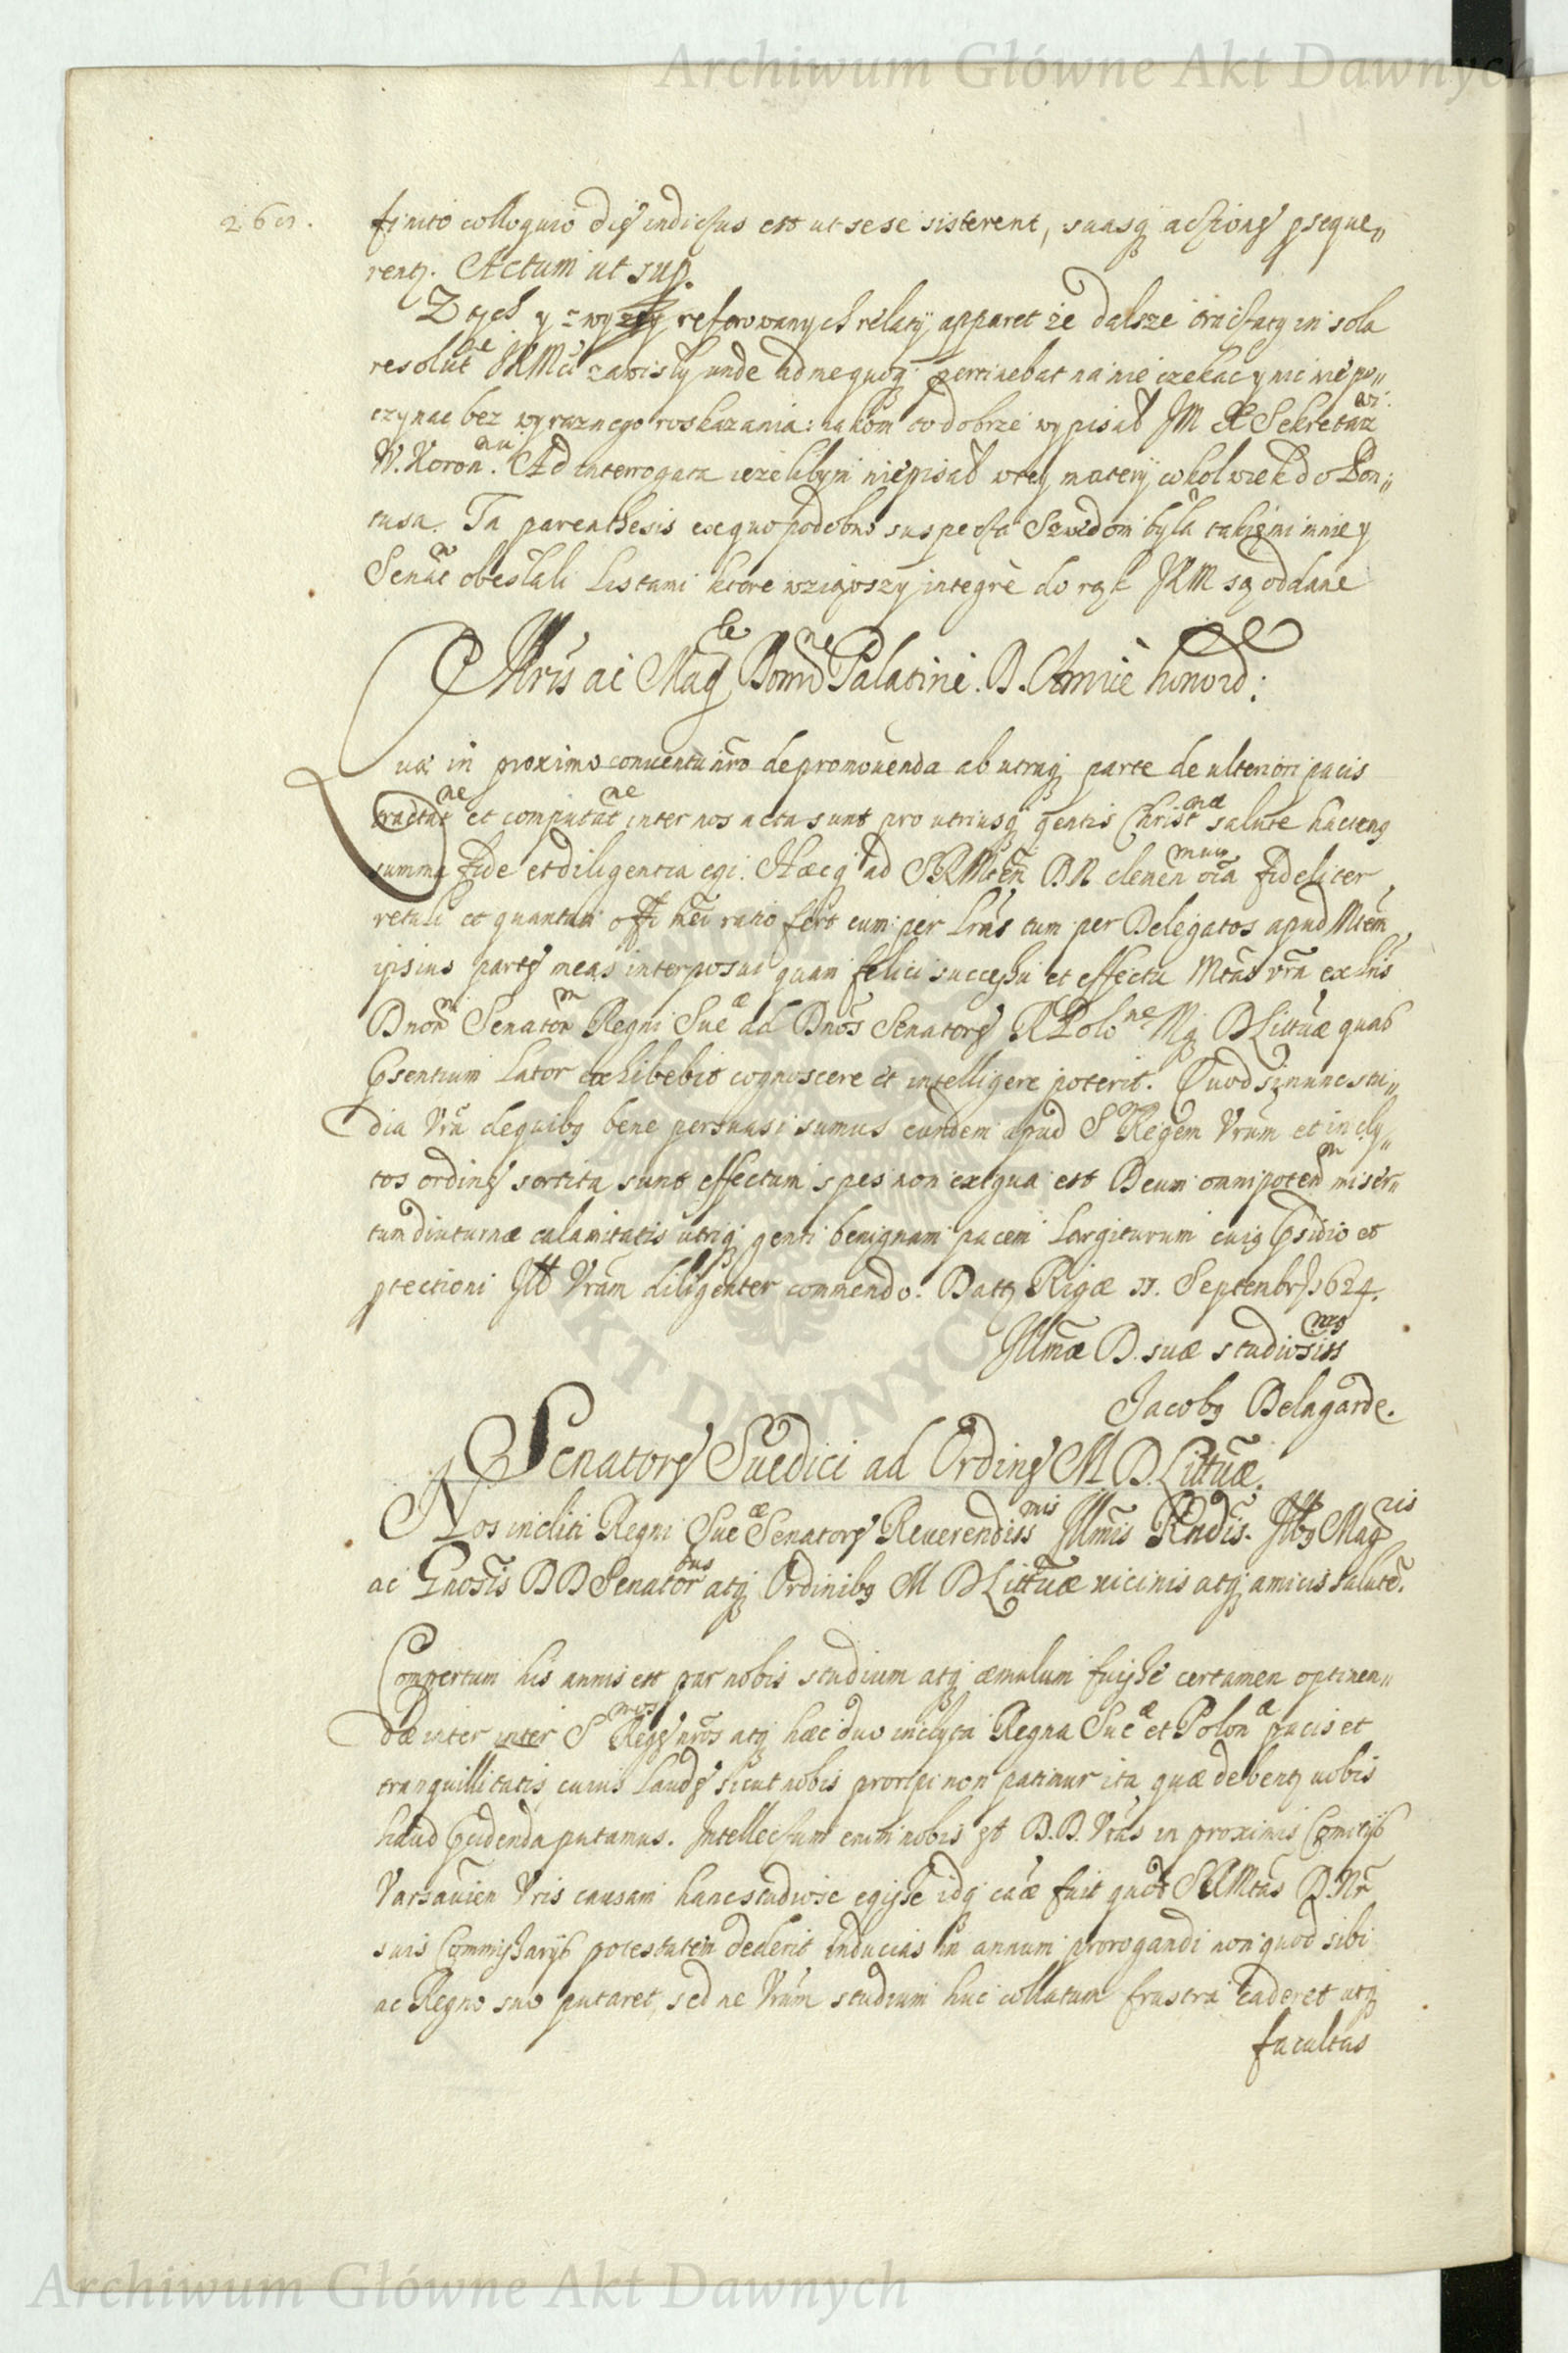 Archiwum Główne Akt Dawnych
finito colloquio dies indictus est ut sese sisterent, suasq actiones pseque„
rent. Actum ut sup.
Z tych y zwyż referowanych relatij apparet że dalsze tractaty in sola
resolut JKMci zawisły unde ad me quoq pertinebat na nie czekac y nic nie po„
czynac bez wyraznego roskazania: iakom to dobrze wypisał JM X Sekretarzowi
W. Koron. Ad interrogata ieżelibym niepisał wtey materij cokolwiek do Pon„
tusa. Ta parenthesis ex quo podobno suspecta Szwedom była takiemi mnie y
Senat obesłali Listami ktore wziąwszy integrè do rąk JKM są oddane
Illris ac Mag Domne Palatine. D. Amice honord:
Quæ in proximo conventu nro de promouenda ab utraq parte de ulteriori pacis
tractatne et computatne inter nos acta sunt pro utriusq gentis Christnæ salute hacteng
summa fide et diligentia egi. Hæcq ad SRMtem DN clemen oia fideliter
retuli et quantum offi mei ratio fert cum per Lras tum per Delegatos apud Mtem
ipsius partes meas interposui quam felici successu et effectu Mtas vra ex Lris
Dnorm Senatorm Regni Sueæ ad Dnos Senatores R Polone Mq D Littuæ quas
Psentium Lator exhibebit cognoscere et intelligere poterit. Quod si nunc stu„
dia Vra de quibg bene persuasi sumus eundem apud S Regem Vrum et incly„
tos ordines sortita sunt effectum spes non exigua est Deum omnipotenm miser„
tum diuturnæ calamitatis utriq genti benignam pacem Largiturum cuig Psidio et
ptectioni Ill Vram diligenter commendo. Datt Rigæ 11. Septembr 1624.
Illmæ D. suæ studiosissmg
Jacobg Delagarde.
Senatores Suedici ad Ordines M D. Littuæ.
Nos incliti Regni Sueæ Senatores Reuerendissmis Illmis Rndis. Illbg Magcis
ac Gnosis DD Senatorbus atq Ordinibg M D Littuæ vicinis atq amicis salute.
Compertum his annis est par nobis studium atq æmulum fuisse certamen optinen„
dæ inter inter Smos Reges nros atq hæc duo inclyta Regna Sueæ et Polonæ pacis et
tranquillitatis, cuius Laudes sicut nobis proripi non patimur ita quæ debent vobis
haud Psidenda putamus. Intellectum enim nobis est D.D. Vras in proximis Comitijs
Varsauien Vris causam hanc studiose egisse idq caa fuit quod SRMtas D.Nr
suis Commissarijs potestatem dederit inducias in annum prorogandi non quod sibi
ac Regno suo putaret, sed ne Vrum studium huc collatum frustra caderet atq
facultas
Archiwum Główne Akt Dawnych